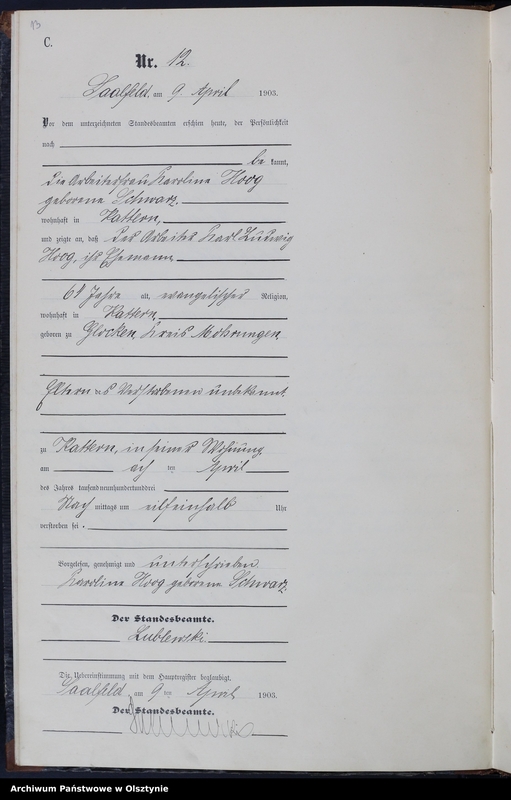 13
C.
Nr. 12.
Saalfeld am 9. April 1903.
Vor dem unterzeichneten Standesbeamten erschien heute, der Persönlichkeit
nach
be kannt,
die Arbeiterfrau Karoline Hoog
geborene Schwarz.
wohnhaft in Kattern,
und zeigte an, daß der Arbeiter Karl Ludwig
Hoog, ihr Ehemann,
61 Jahre alt, evangelischer Religion,
wohnhaft in Kattern,
geboren zu Kreis Mohrungen
Eltern des Verstorbenen unbekannt.
zu Kattern, in seiner Wohnung
am ach ten April
des Jahres tausendneunhundertunddrei
Nach mittags um Uhr
verstorben sei.
Vorgelesen, genehmigt und unterschrieben
Karoline Hoog geborene Schwarz.
Der Standesbeamte.
Lublewski.
Die Uebereinstimmung mit dem Hauptregister beglaubigt.
Saalfeld, am 9 ten April 1903.
Der Standesbeamte.
Archiwum Państwowe w Olsztynie